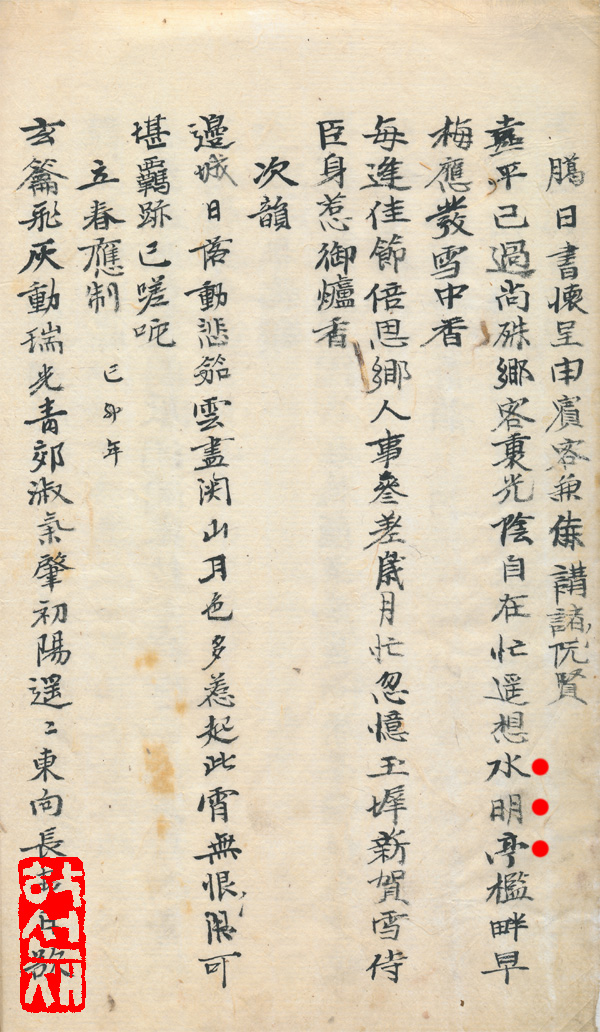 臈日書懷呈申賓客兼講諸阮賢
嘉平已過尚殊鄉客裏光陰自在忙遥想水明亭檻畔早
梅應發雪中香
每逢佳節倍思鄉人事參差歲月忙忽憶玉墀新賀雪侍
臣身惹御爐香
次韻
邊城日落動悲笳雲盡関山月色多惹起此宵無恨限可
堪羈跡已嗟
立春應制 己卯年
玄籥飛灰動瑞光青郊淑氣肇初陽遥〻東向長